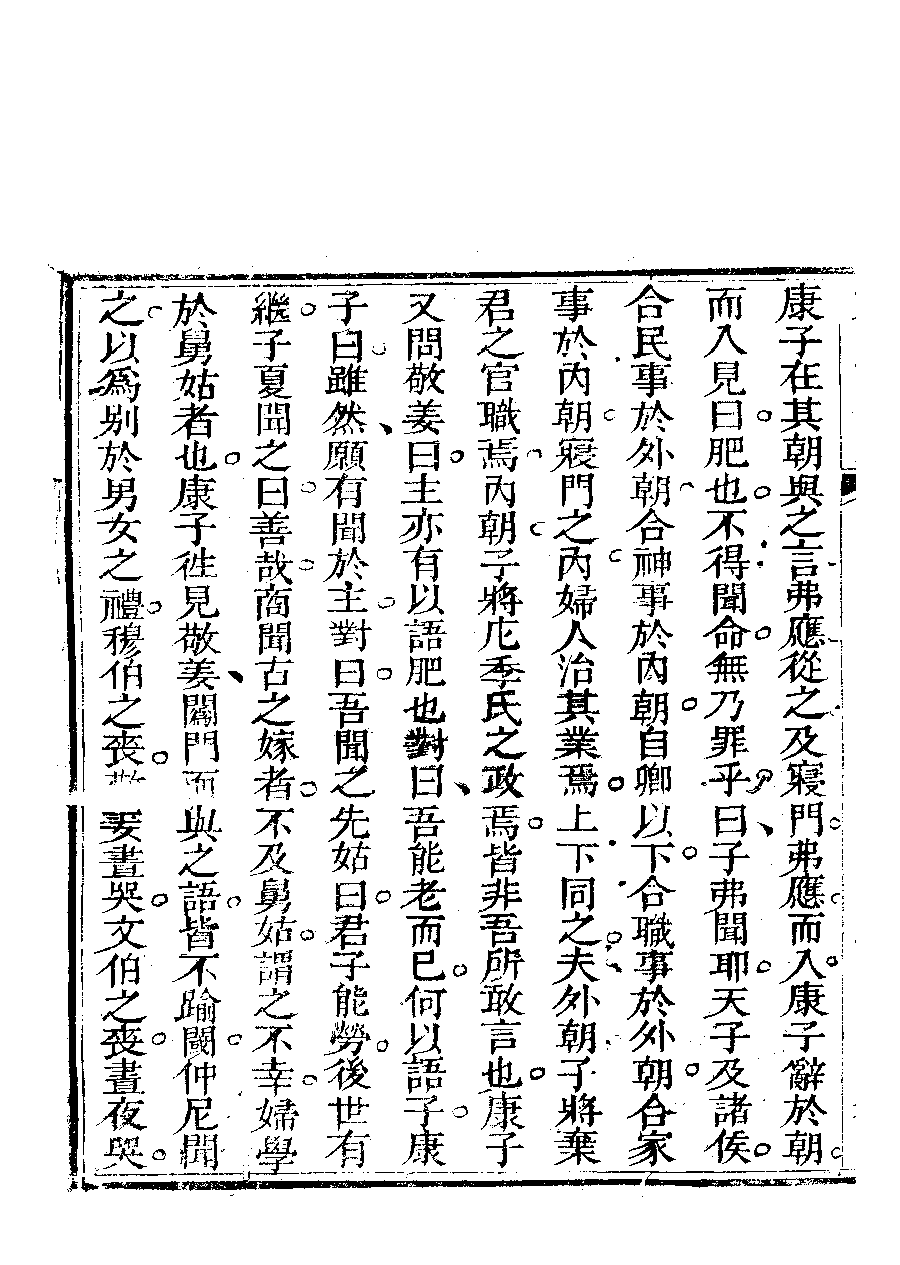 康子在其朝與之言弗應從之及寢門弗應而入康子辭於朝
而入見曰肥也不得聞命無乃罪乎曰子弗聞耶天子及諸侯
合民事於外朝合神事於內朝自卿以下合職事於外朝合家
事於內朝寢門之內婦人治其業焉上下同之夫外朝子將業
君之官職焉內朝子將庀季氏之政焉皆非吾所敢言也康子
又問敬姜曰主亦有以語肥也對曰吾能老而已何以語子康
子曰雖然願有聞於主對曰吾聞之先姑曰君子能勞後世有
繼子夏聞之曰善哉商聞古之嫁者不及舅姑謂之不幸婦學
於舅姑者也康子徃見敬姜闈門而與之語皆不踰閾仲尼聞
之以爲別於男女之禮穆伯之喪敬姜晝哭文伯之喪晝夜哭